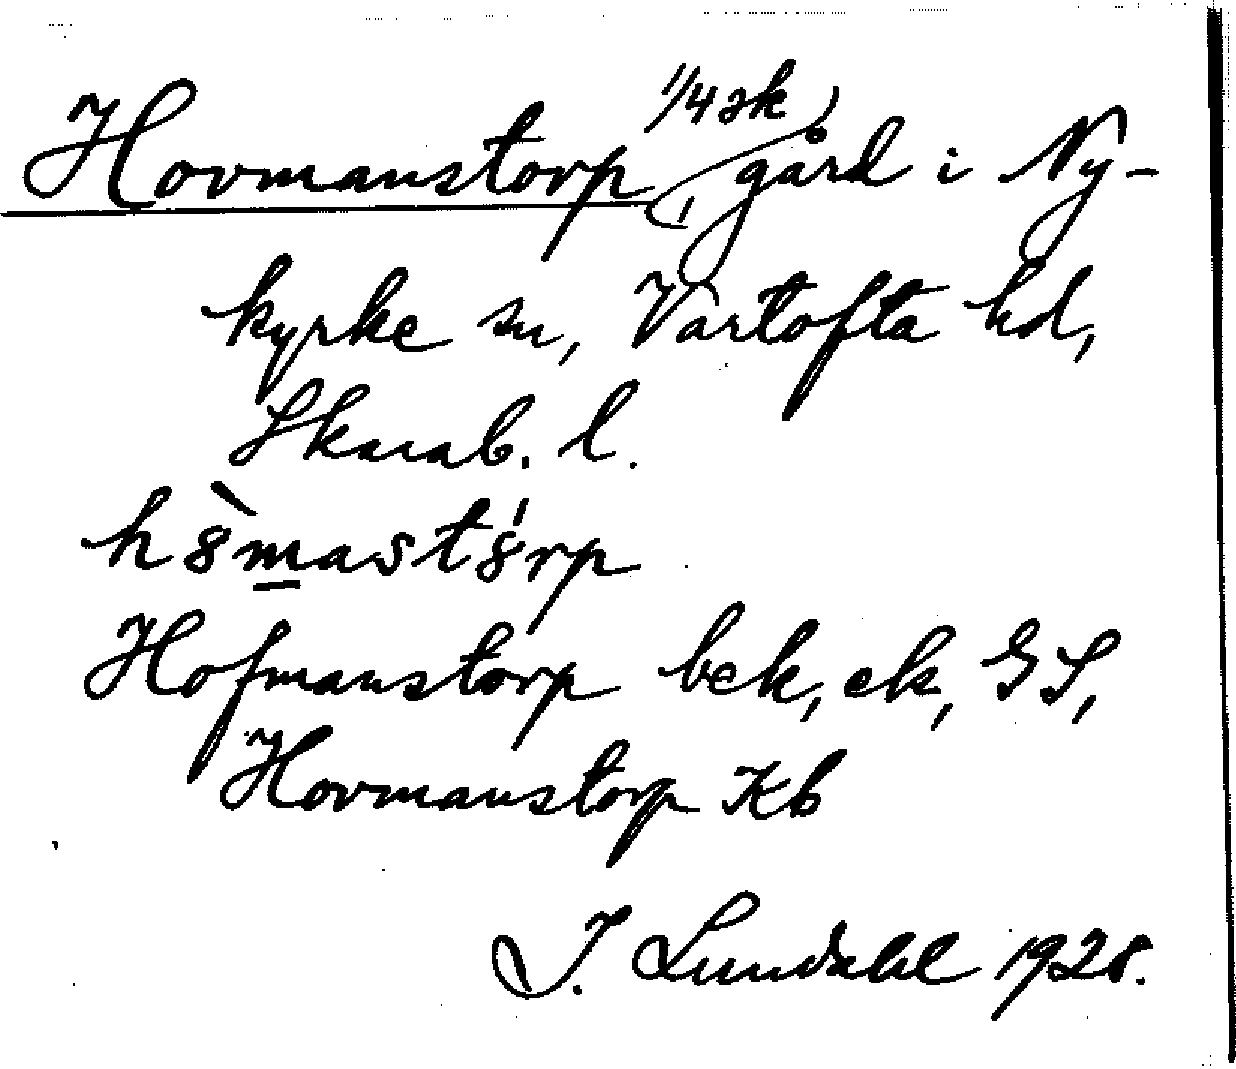 Hovmanstorp, 1/4 sk, gård i Ny-
kyrke sn, Vartofta hd,
Skarab. l.
hòmast'orp
Hofmanstorp bek, ek, GS,
Hovmanstorp Kb
I. Lundahl 1928.